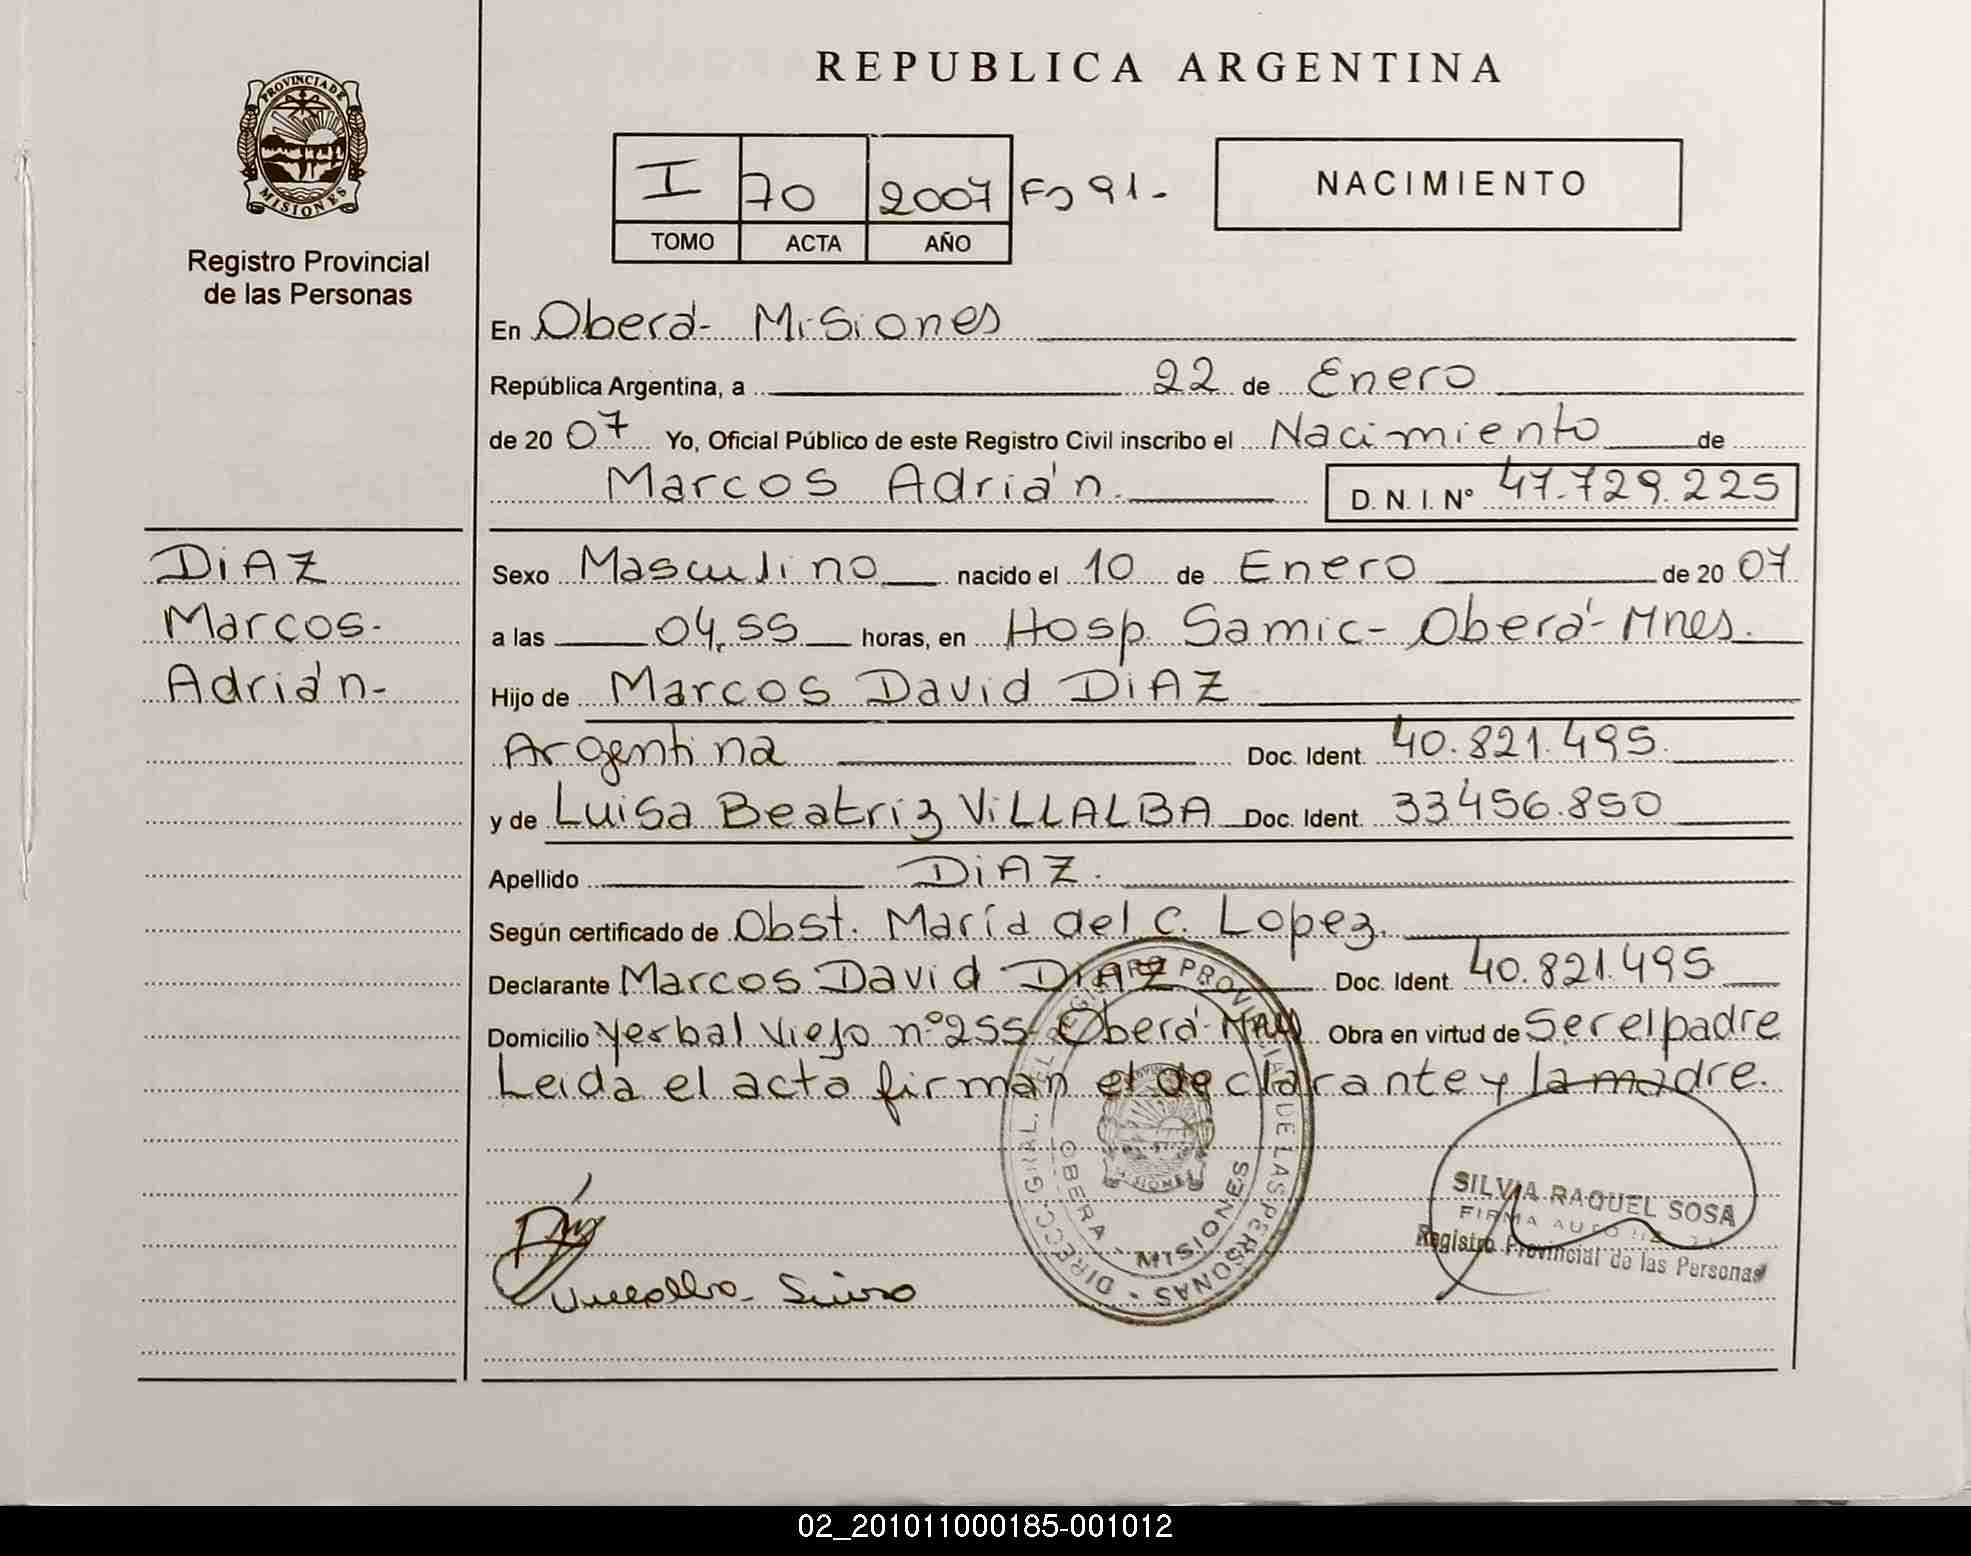 PROVINCIA DE
MISIONES
Registro Provincial
de las Personas
REPUBLICA ARGENTINA
I 70 2007 Fº 91-
TOMO ACTA AÑO
NACIMIENTO
En Oberá- Misiones
República Argentina, a 22 de Enero
de 2007 Yo, Oficial Público de este Registro Civil inscribo el Nacimiento de
Marcos Adrián. D. N. I. Nº 47.729.225
DiAZ
Marcos-
Adrián-
Sexo Masculino nacido el 10 de Enero de 2007
a las 04,55 horas, en Hosp. Samic- Oberá- Mnes.
Hijo de Marcos David DiAZ
Argentina Doc. Ident. 40.821.495.
y de Luisa Beatriz ViLLALBA Doc. Ident. 33456.850
Apellido DiAZ.
Según certificado de Obst. María del C. Lopez.
Declarante Marcos David DiAZ Doc. Ident. 40.821.495
Domicilio Yerbal Viejo nº255- Oberá- Obra en virtud de Ser el padre
Leida el acta firman el declarante y la madre.
DIRECC. GRAL. DEL REGISTRO PROVINCIAL DE LAS PERSONAS
OBERA - MISIONES
SILVIA RAQUEL SOSA
FIRMA AUTORIZADA
Registro Provincial de las Personas
02_201011000185-001012